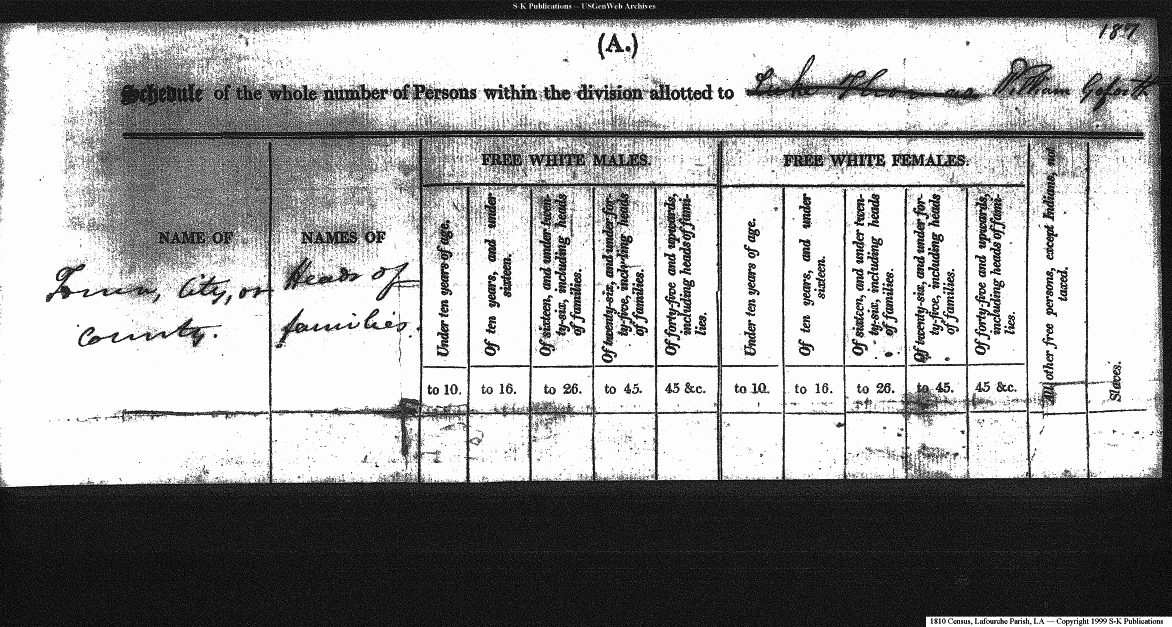 S-K Publications -- USGenWeb Archives
187
(A.)
Schedule of the whole number of Persons within the division allotted to Luke Thomas William Goforth
FREE WHITE MALES. FREE WHITE FEMALES.
NAME OF
Town, City, or
County.
NAMES OF
Heads of
families.
Under ten years of age.
Of ten years, and under
sixteen.
Of sixteen, and under twen-
ty-six, including heads
of families.
Of twenty-six, and under for-
ty-five, including heads
of families.
Of forty-five and upwards,
including heads of fami-
lies.
Under ten years of age.
Of ten years, and under
sixteen.
Of sixteen, and under twen-
ty-six, including heads
of families.
Of twenty-six, and under for-
ty-five, including heads
of families.
Of forty-five and upwards,
including heads of fami-
lies.
All other free persons, except Indians, not
taxed.
Slaves.
to 10. to 16. to 26. to 45. 45 &c. to 10. to 16. to 26. to 45. 45 &c.
1810 Census, Lafourche Parish, LA — Copyright 1999 S-K Publications